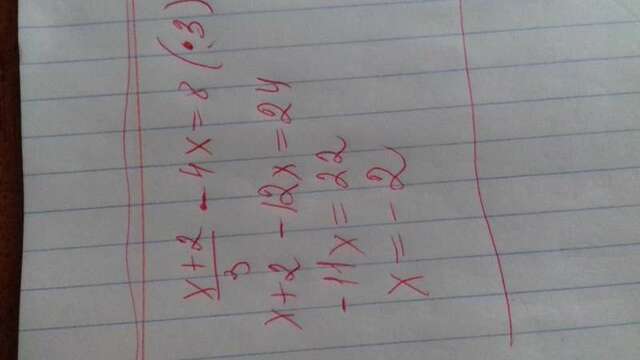 x+2/3 - 4x = 8 (·3)
x+2 - 12x = 24
-11x = 22
x = -2